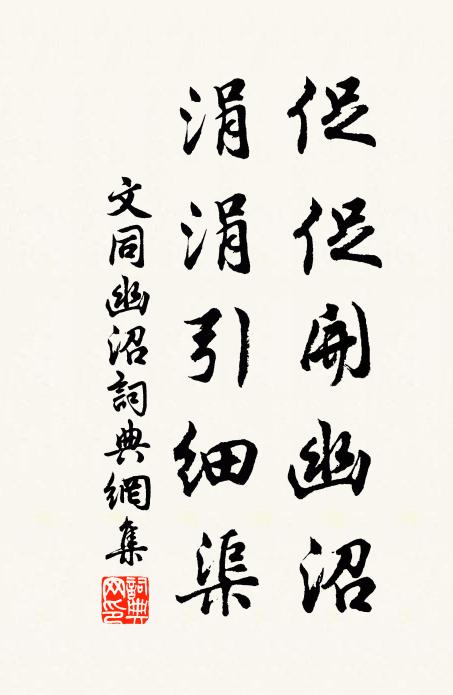 促促開幽沼
涓涓引細渠
文同幽沼詞典網集
詞典網印